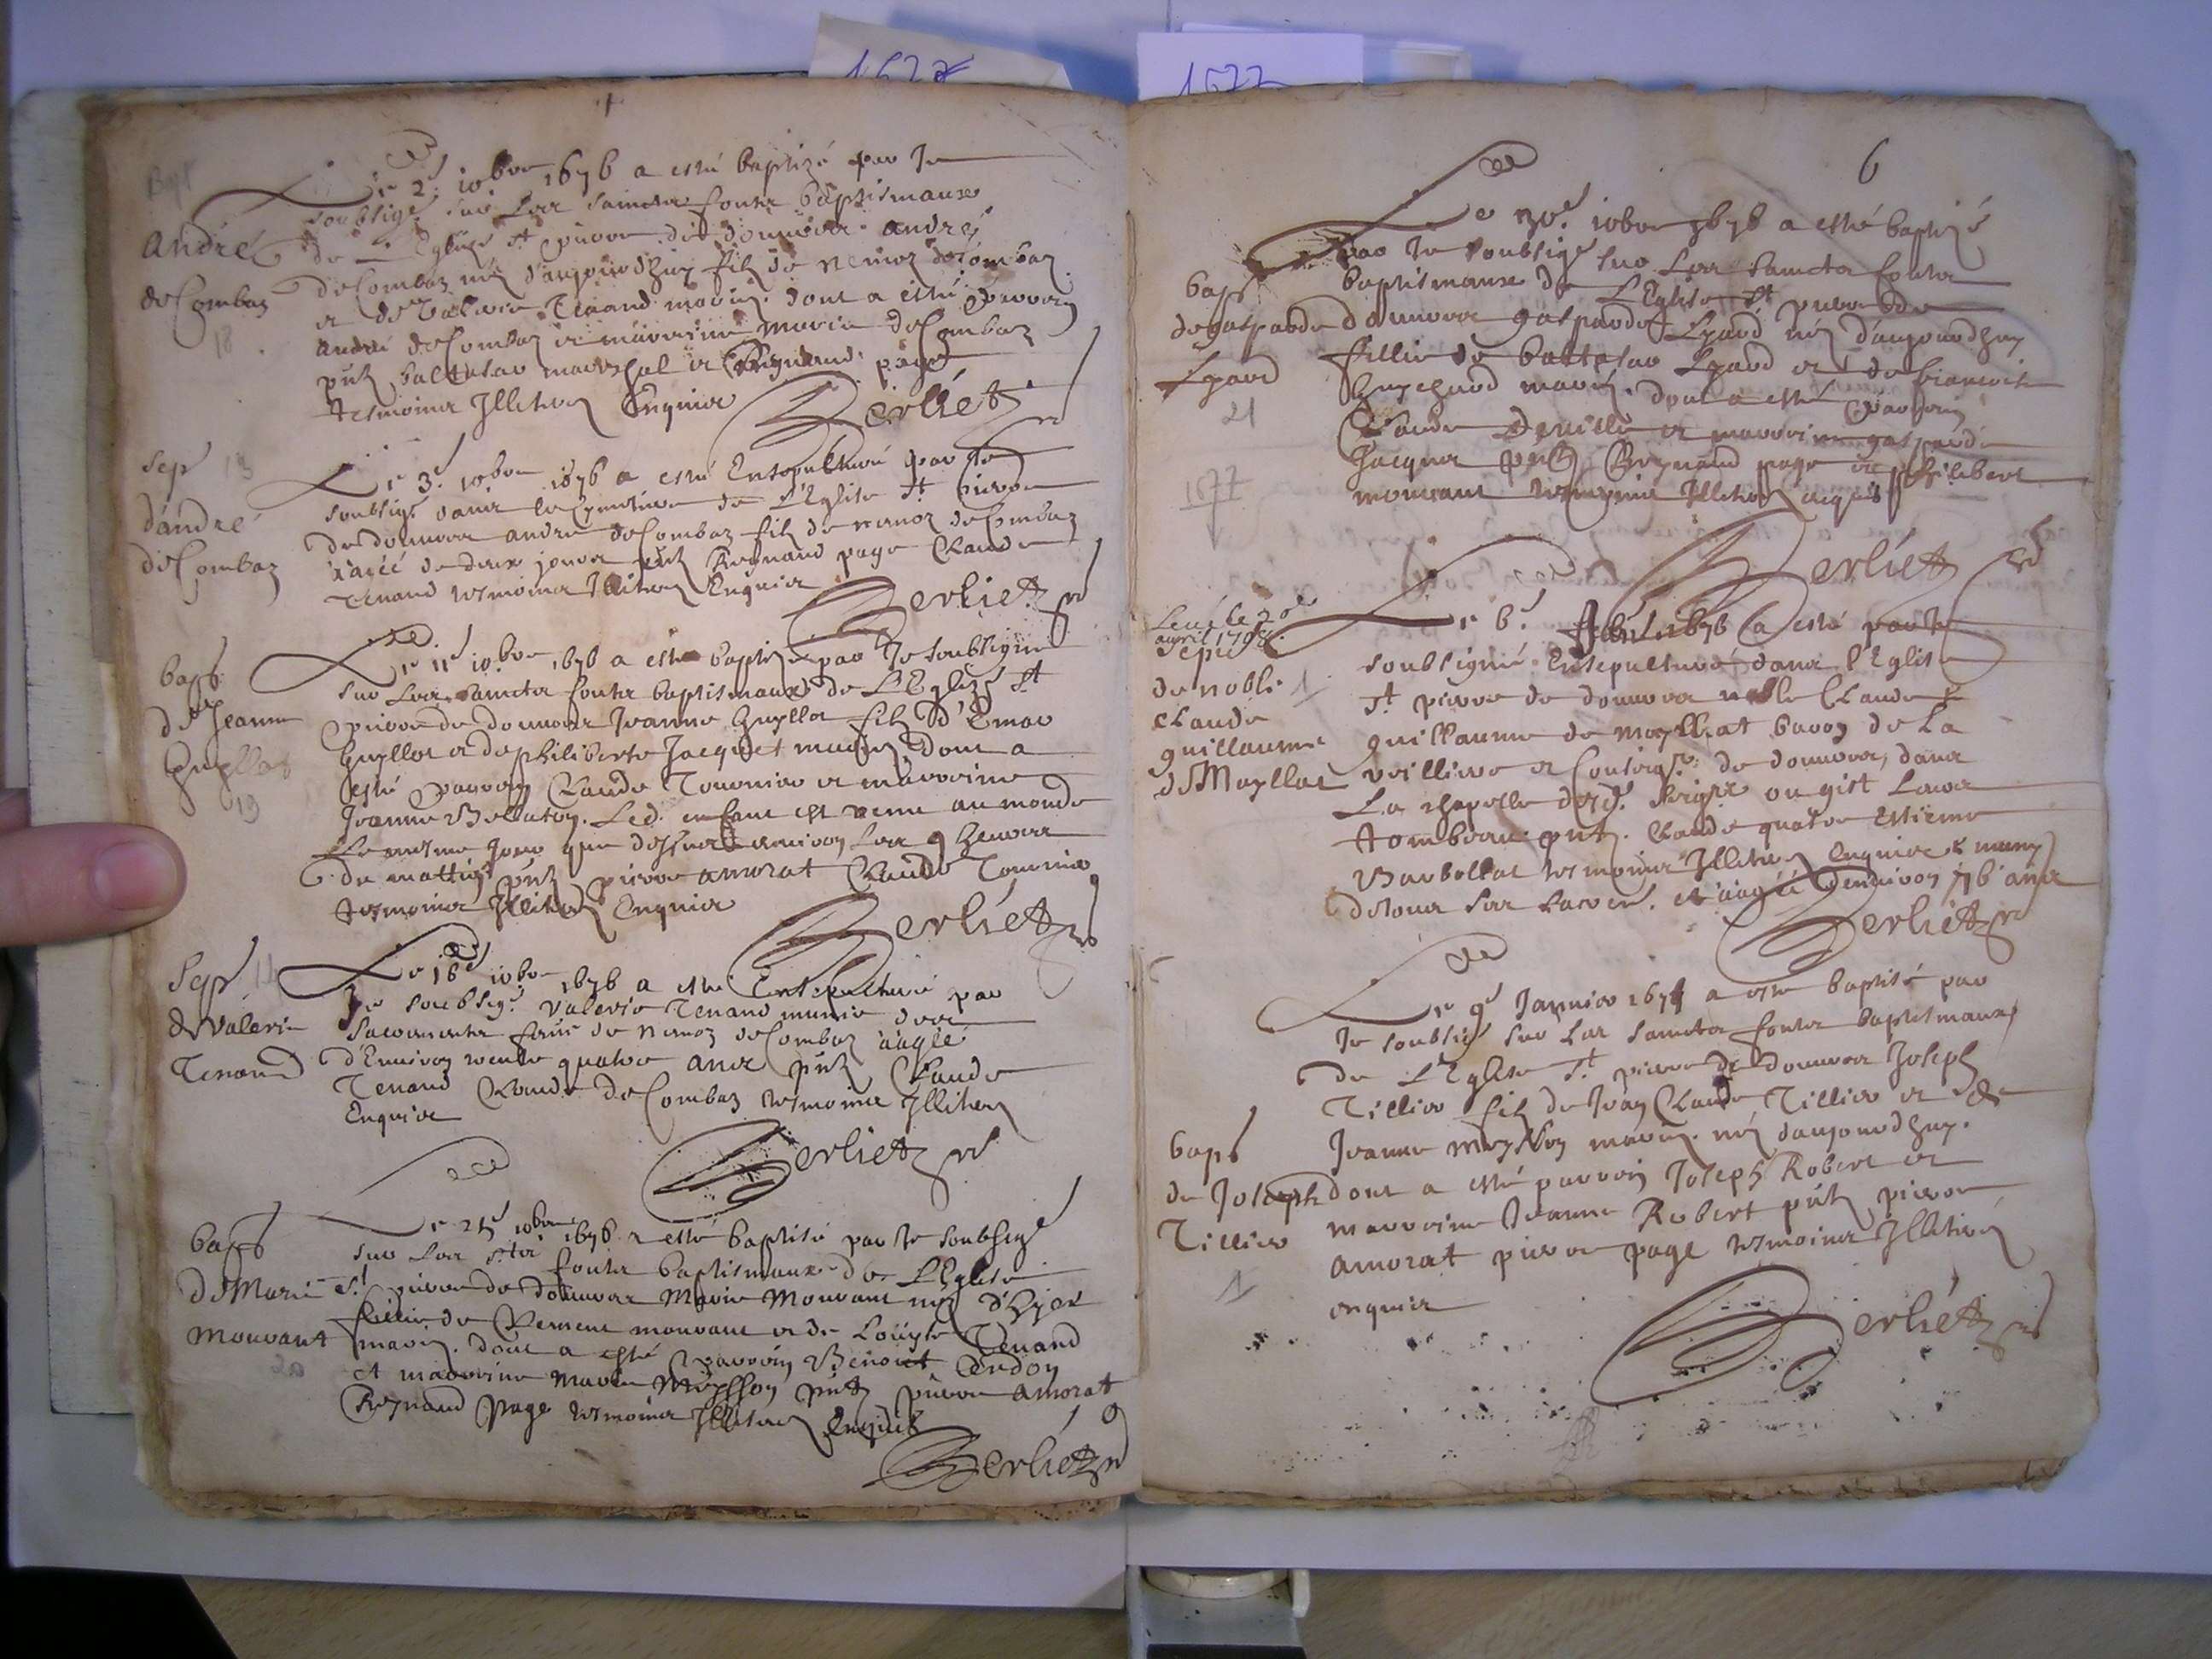 1677
André
de Combaz
18
Le 2e 10bre 1676 a esté baptizé par Je
soubsigé sur Les saincts fonts baptismaux
de L'Eglize St pierre de douvres andré
deCombaz né d'aujourdhuy filz de
et de Tenand mariez. dont a esté parrain
André deCombaz et marrine Marie deCombaz
pntz baltasar mareschal et Reynaud page
tesmoins Illiterez Enquis
Berliet
Sep
d'andré
deCombaz
Le 3e 10bre 1676 a esté Ensepulturé par Je
soubsigé dans le cymetiere de L'Eglise St pierre
de douvres andre deCombaz filz de deCombaz
aagé de deux jours pntz Reynaud page Claude
Tenand tesmoins Illiterez Enquis
Berliet
bapt
de Jeanne
Guyllot
19
Le 11e 10bre 1676 a esté baptizé par Je soubsigné
sur Les saincts fonts baptismaux de L'Eglize St
pierre de douvres Jeanne Guyllot
Guyllot et de philiberte Jacquet mariez dont a
esté parrain Claude et marrine
Jeanne Led. enfant est venu au monde
Le mesme Jour que dessus environ Les 9 heures
du mattin pntz pierre amorat Claude
tesmoins Illiterez Enquis
Berliet
Sep
de Valerie
Tenand
Le 16e 10bre 1676 a esté Ensepulturé par
Je soubsigé Valerie Tenand munie des
Sacrements feme de deCombaz aagée
d'Environ trente quatre ans pntz Claude
Tenand Claude deCombaz tesmoins Illiterez
Enquis
Berliet
bapt
de Marie
Mouvant
20
Le 10bre 1676 a esté baptisé par Je soubsigé
sur Les fonts baptismaux de L'Eglise
St pierre de douvres Marie Mouvant né d'hyer
fillie de Clement mouvant et de Louyse Tenand
mariez. dont a esté parrain Benoict
et marrine Marie pntz pierre Amorat
Reynaud Page tesmoins Illiterez Enquis
Berliet
1677
6
bapt
de gasparde
Lyard
21
1677
Le 30e 10bre 1676 a esté baptizé
par Je soubsigé sur Les saincts fonts
baptismaux de L'Eglise St pierre de
douvres gasparde Lyard né d'aujourdhuy
fillie de baltasar Lyard et de francoise
mariez. dont a esté parrain
Claude et marrine gasparde
Jacques pntz Reynaud page et philibert
mouvant tesmoins Illiterez enquis
Berliet
Levé le 20e
avril 1708
Sepre
de noble
claude
guillaume
de Moyllat
1
Le 6e 1676 a esté par Je
soubsigné Ensepulturé dans l'Eglise
St pierre de douvres noble Claude
guillaume de Moyllat baron de La
veilliere et Conseigr de douvres, dans
La chapelle desd. seigrs ou gist Leurs
tombeau pntz. Claude quatre Estienne
Barbollat tesmoins Illiterez Enquis & muny
de tous ses sacrem. et aagé d'environ 76 ans
Berliet
bapt
de Joseph
Tillier
1
Le 9e Janvier 1677 a esté baptisé par
Je soubsigé sur Les saincts fonts baptismaux
de L'Eglise St pierre de douvres Joseph
Tillier filz de Jean Claude Tillier et de
Jeanne mariez. né d'aujourdhuy.
dont a esté parrain Joseph Robert et
marrine Jeanne Robert pntz pierre
amorat pierre page tesmoins Illiterez
enquis
Berliet